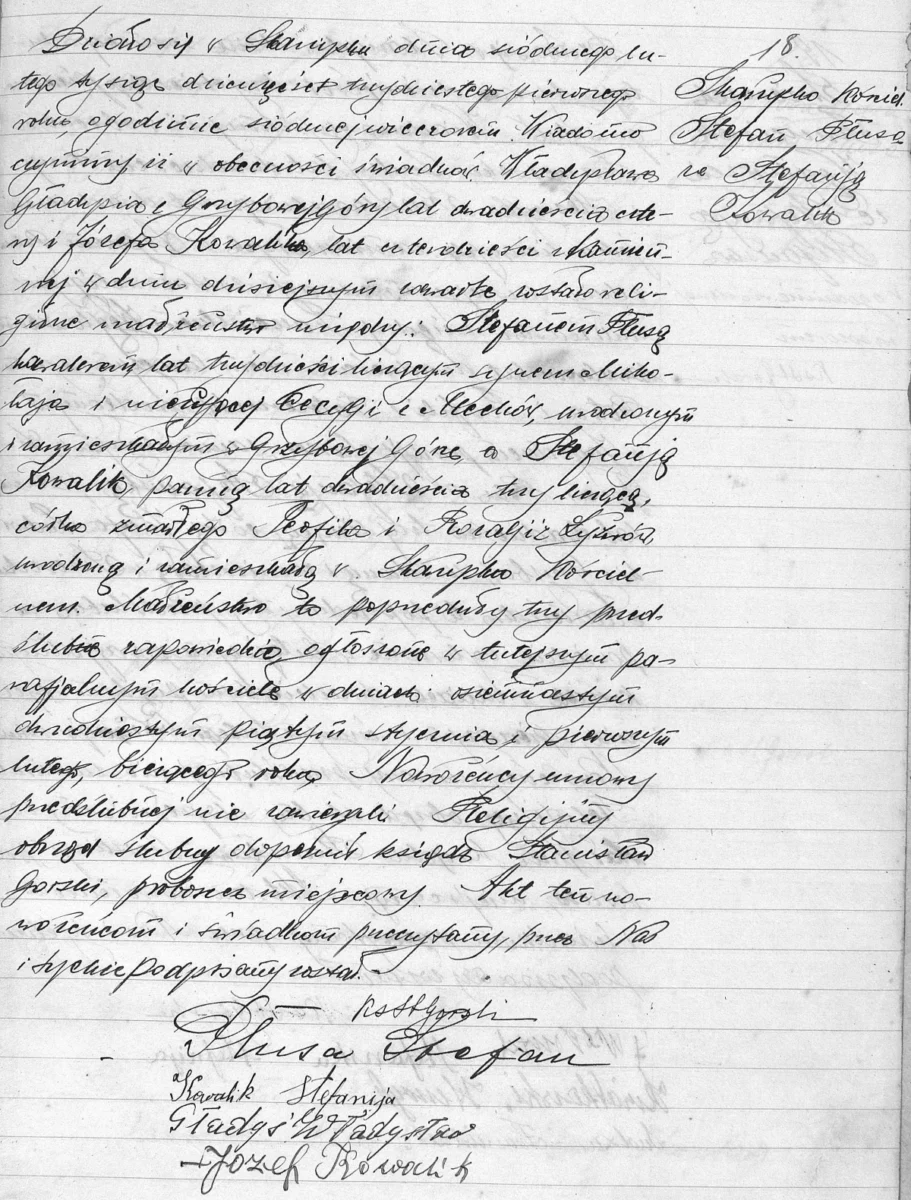 Działo się w Skarżysku dnia siódmego lu-
tego tysiąc dziewięćset trzydziestego pierwszego
roku o godzinie siódmej wieczorem. Wiadomo
czynimy iż w obecności świadków Władysława
Gładysia z Grzybowej Góry lat dwadzieścia czte-
ry i Józefa Kowalika, lat czterdzieści z Kamien-
nej w dniu dzisiejszym zawarte zostało reli-
gijne małżeństwo między: Stefanem Płusą
kawalerem lat trzydzieści liczącym synem Miko-
łaja i nieżyjącej Cecylji z Mechów, urodzonym
i zamieszkałym w Grzybowej Górze, a Stefanją
Kowalik, panną lat dwadzieścia trzy liczącą,
córką zmarłego Teofila i Rozalji z Łyżwów
urodzoną i zamieszkałą w Skarżysku Kościel-
nem. Małżeństwo to poprzedziły trzy przed-
ślubne zapowiedzie, ogłoszone w tutejszym pa-
rafjalnym kościele w dniach: osiemnastym
dwudziestym piątym stycznia i pierwszym
lutego, bieżącego roku. Nowożeńcy umowy
przedślubnej nie zawierali. Religijny
obrzęd ślubny dopełnił ksiądz Stanisław
Górski, proboszcz miejscowy. Akt ten no-
wożeńcom i świadkom przeczytany, przez Nas
i tychże podpisany został.-
Ks St Górski
Płusa Stefan
Kowalik Stefanija
Gładyś Władysław
Józef Kowalik
18.
Skarżysko Kościel.
Stefan Płusa
ze Stefanją
Kowalik